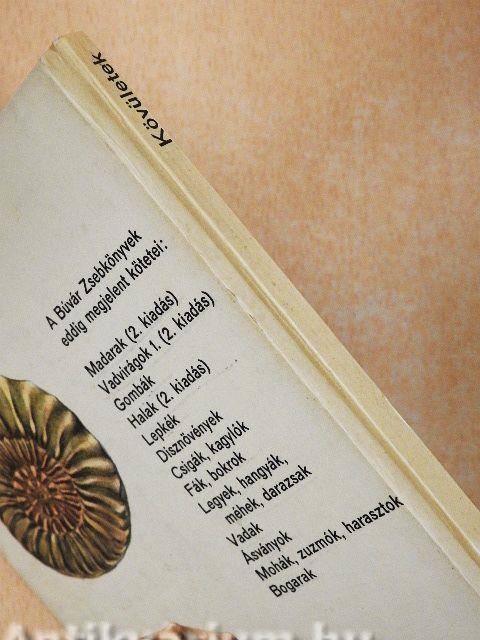 Kövületek
A Búvár Zsebkönyvek
eddig megjelent kötetei:
Madarak (2. kiadás)
Vadvirágok 1. (2. kiadás)
Gombák
Halak (2. kiadás)
Lepkék
Dísznövények
Csigák, kagylók
Fák, bokrok
Legyek, hangyák,
méhek, darazsak
Vadak
Ásványok
Mohák, zuzmók, harasztok
Bogarak
Antikvárium.hu